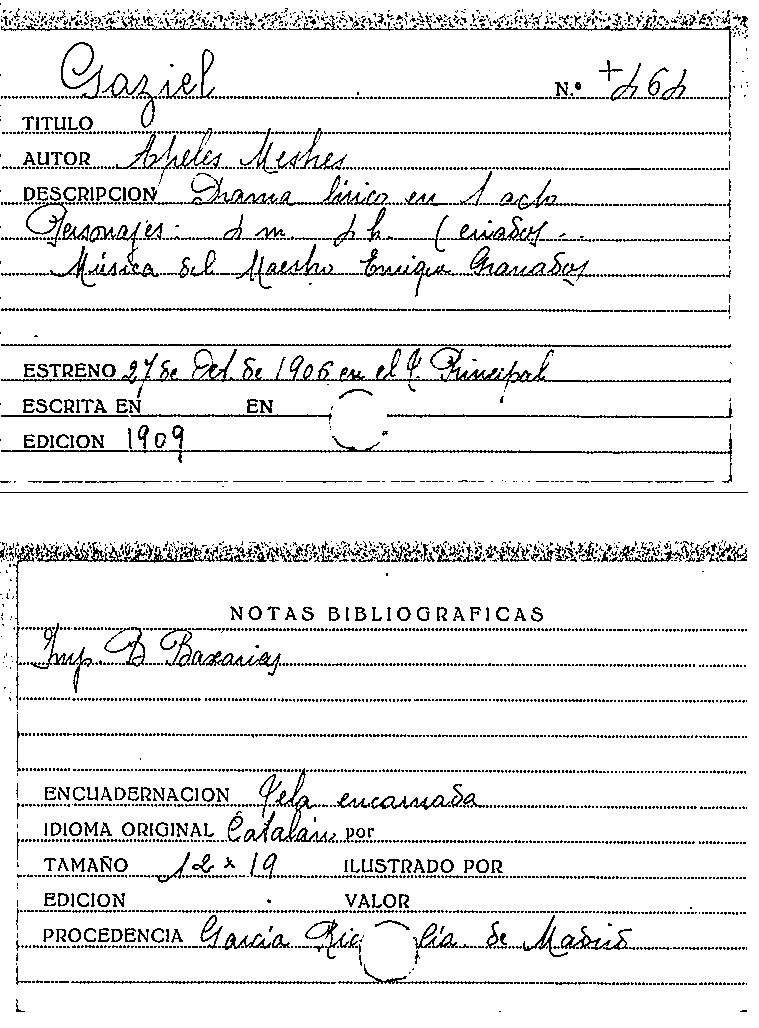 Gaziel
N.º +464
TITULO
AUTOR Apeles Mestres
DESCRIPCION Drama lírico en 1 acto
Personajes: 4 m. 4 h. (criados..
Música del Maestro Enrique Granados
ESTRENO 27 de Oct. de 1906 en el T. Principal
ESCRITA EN EN
EDICION 1909
NOTAS BIBLIOGRAFICAS
Imp. B Baxarias
ENCUADERNACION Tela encarnada
IDIOMA ORIGINAL Catalán por
TAMAÑO 12 x 19 ILUSTRADO POR
EDICION VALOR
PROCEDENCIA García Ric cía de Madrid